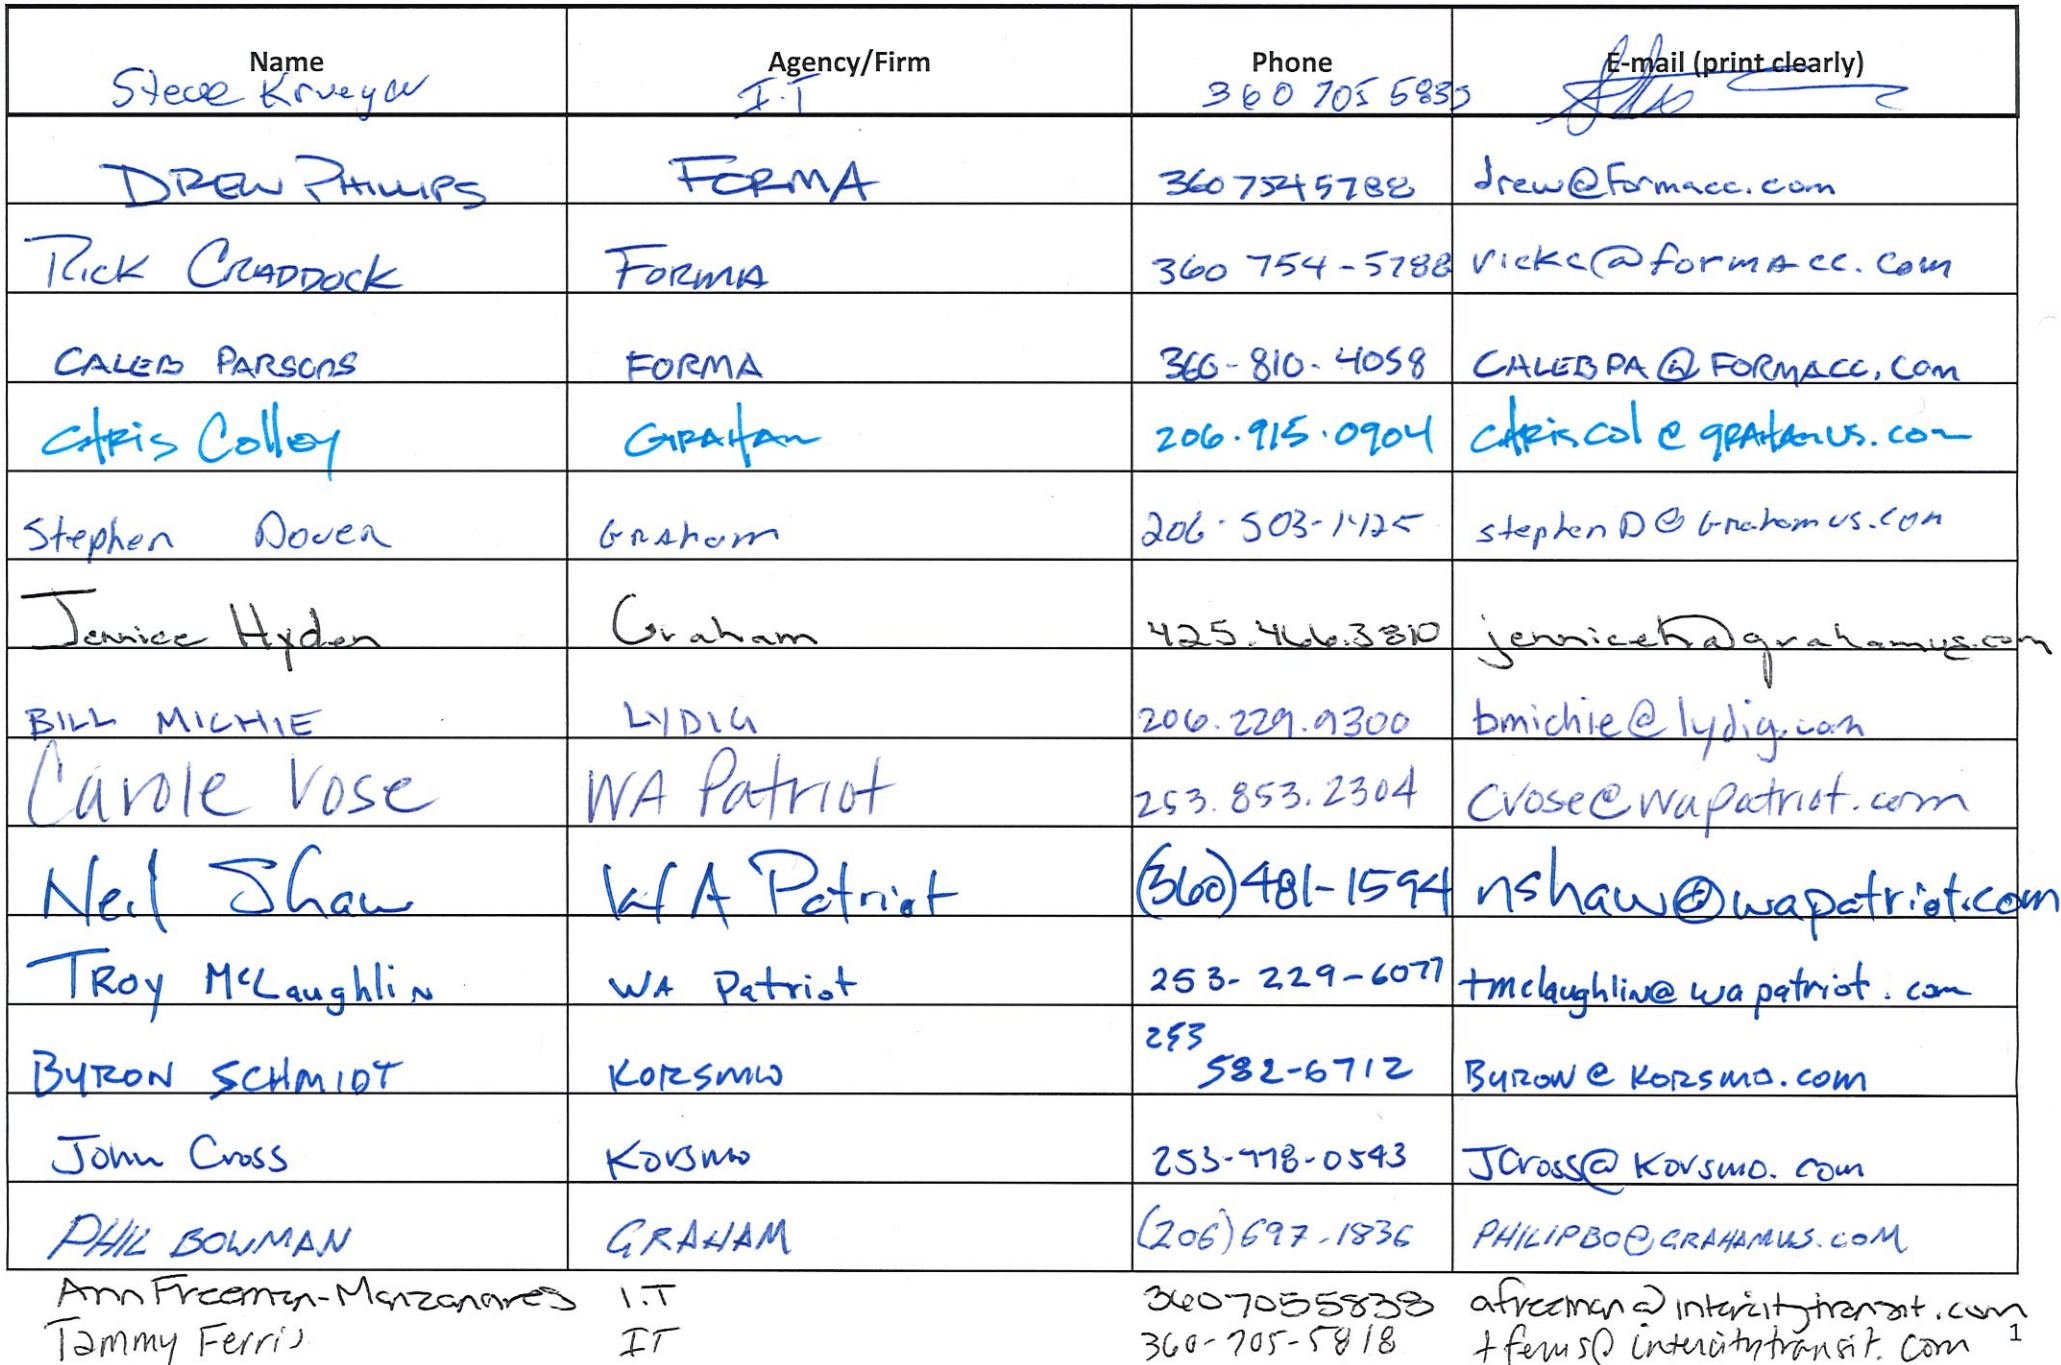 Name Agency/Firm Phone E-mail (print clearly)
Steve Krueger I.T 360 705 583
DREW PHILLIPS FORMA 360 754 5788 drew@formacc.com
RICK CRADDOCK FORMA 360 754-5788 rickc@formacc.com
CALEB PARSONS FORMA 360-810-4058 CALEBPA@FORMACC.COM
CHRIS Colley GRAHAM 206.915.0904 CHRISCOl@GRAHAMUS.com
Stephen Dover GRAham 206-503-1425 stephenD@Grahamus.com
Jennice Hyden Graham 425.466.3810 jenniceh@grahamus.com
BILL MICHIE LYDIG 206.229.9300 bmichie@lydig.com
Carole Vose WA Patriot 253.853.2304 cvose@wapatriot.com
Neil Shaw WA Patriot (360)481-1594 nshaw@wapatriot.com
TROY McLaughlin WA Patriot 253-229-6077 tmclaughlin@wapatriot.com
253
BYRON SCHMIDT KORSMO 582-6712 BYRON@KORSMO.com
John Cross Korsmo 253-778-0543 JCross@Korsmo.com
PHIL BOWMAN GRAHAM (206)697-1836 PHILIPBO@GRAHAMUS.COM
Ann Freeman-Manzanares I.T 3607055838 afreeman@intercitytransit.com
Tammy Ferris IT 360-705-5818 tferris@intercitytransit.com 1